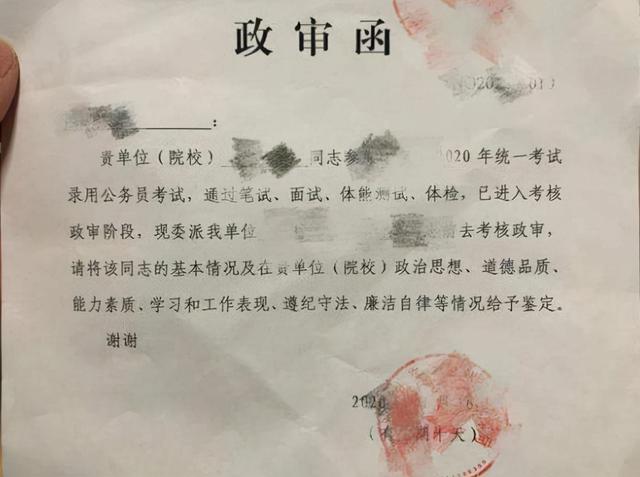 政审函
：
贵单位（院校） 同志参 2020年统一考试
录用公务员考试，通过笔试、面试、体能测试、体检，已进入考核
政审阶段，现委派我单位 前去考核政审，
请将该同志的基本情况及在贵单位（院校）政治思想、道德品质、
能力素质、学习和工作表现、遵纪守法、廉洁自律等情况给予鉴定。
谢谢
2020